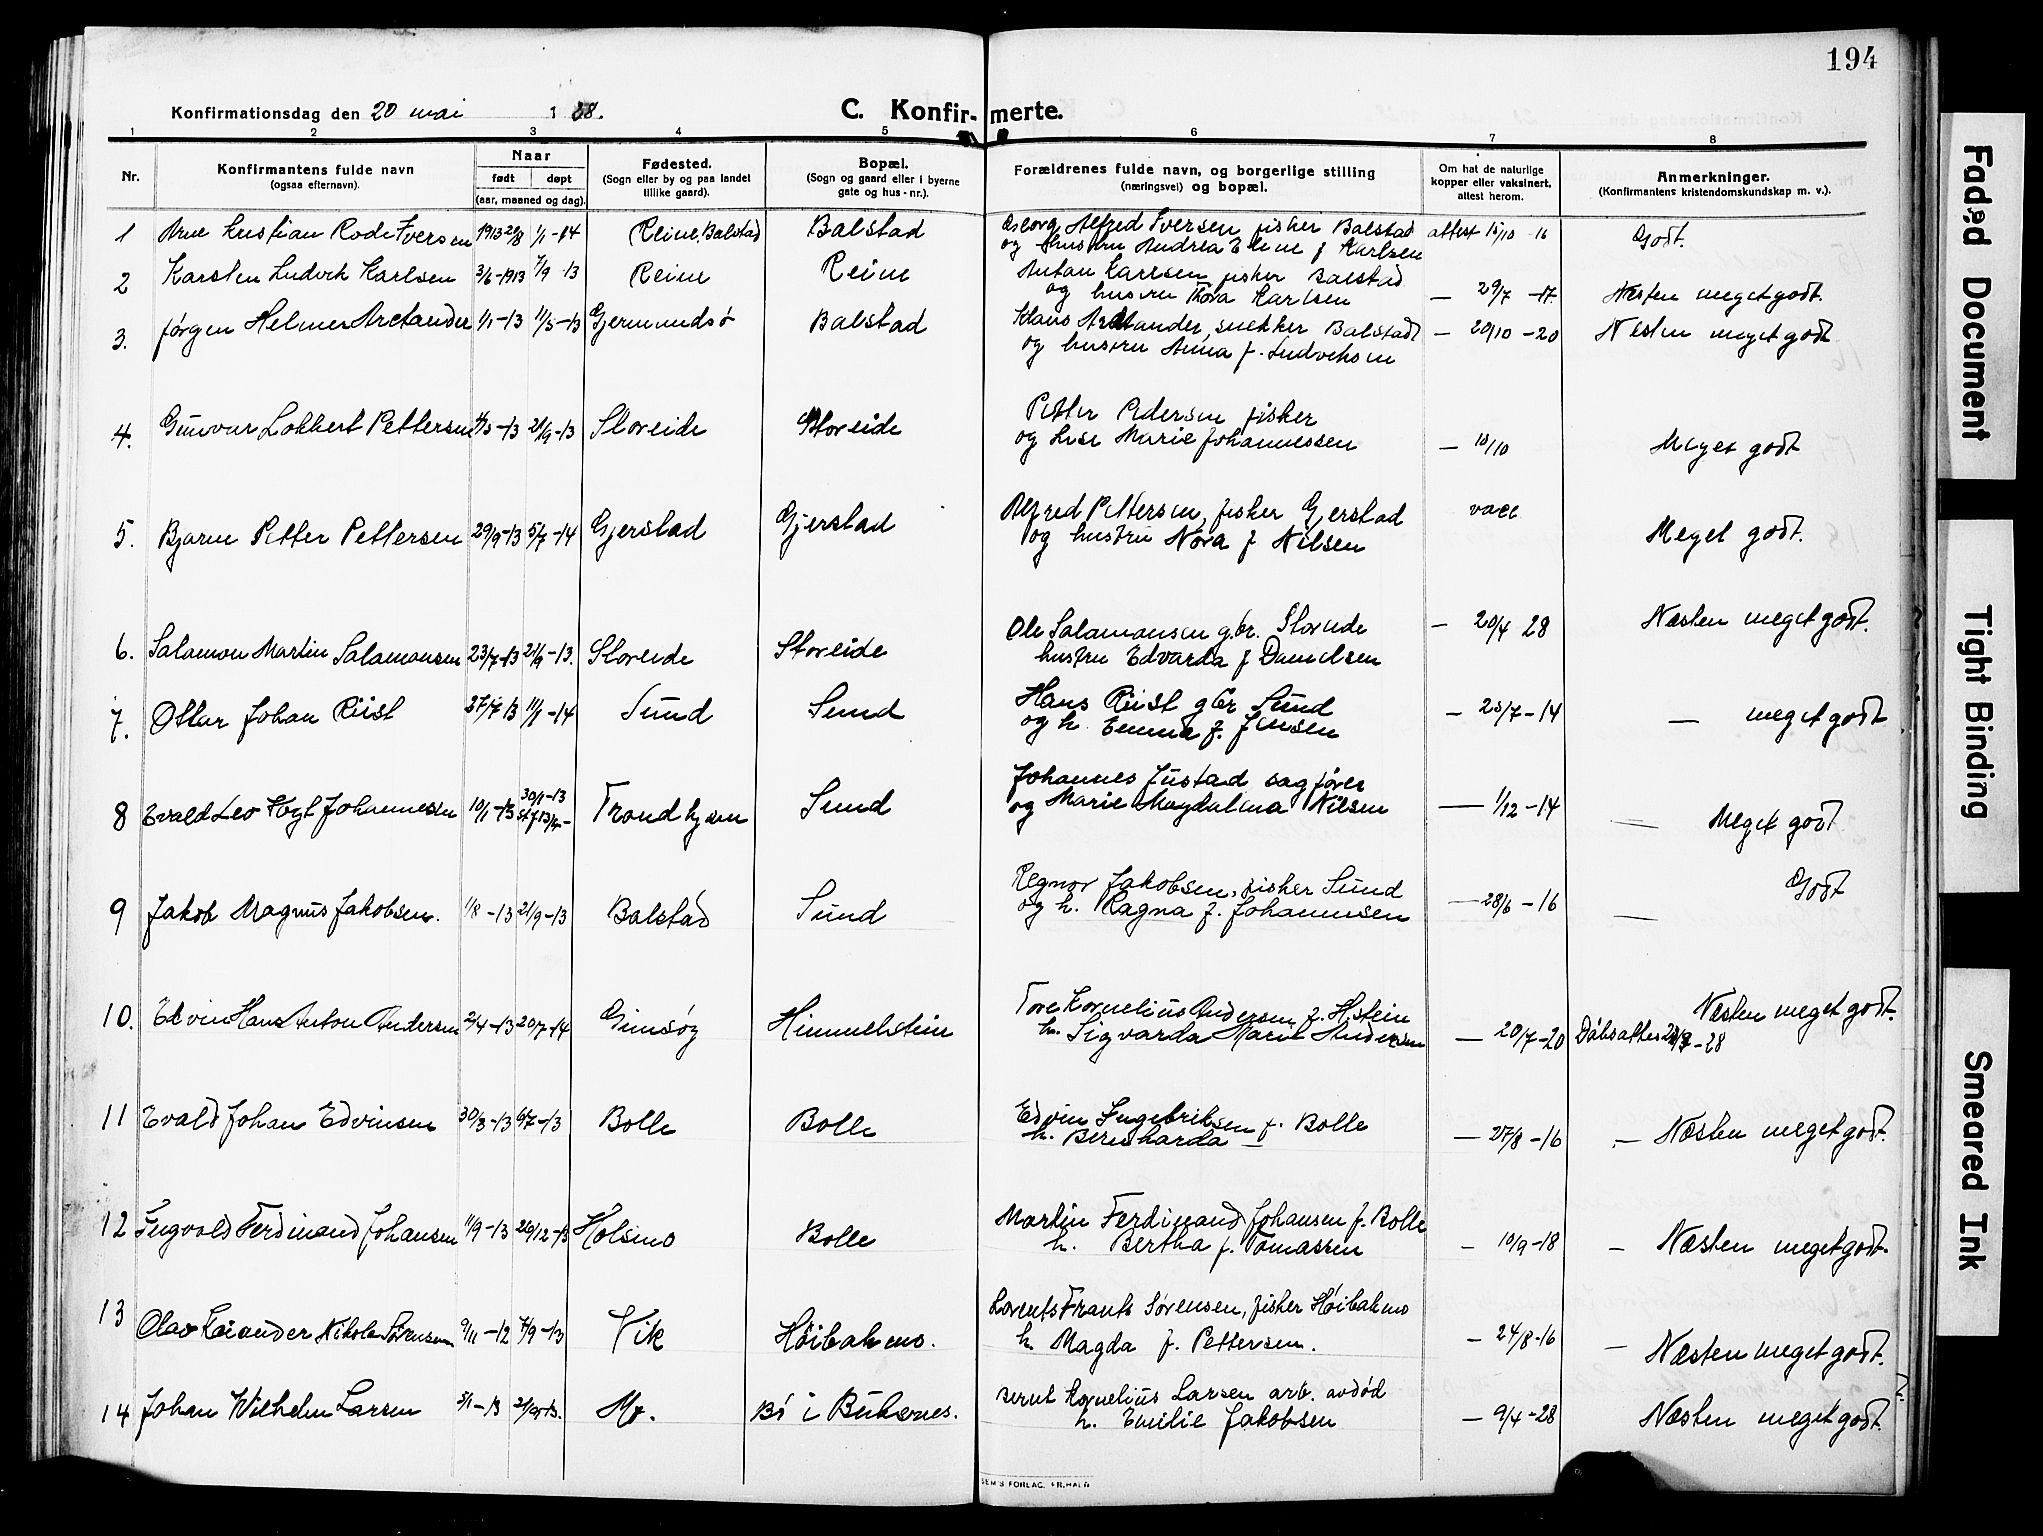 194
Konfirmationsdag den 20 mai 1 28.
C. Konfir- merte.
1 2 3 4 5 6 7 8
Nr.
Konfirmantens fulde navn
(ogsaa efternavn).
Naar
født døpt
(aar, maaned og dag).
Fødested.
(Sogn eller by og paa landet
tillike gaard).
Bopæl.
(Sogn og gaard eller i byerne
gate og hus-nr.).
Forældrenes fulde navn, og borgerlige stilling
(næringsvei) og bopæl.
Om hat de naturlige
kopper eller vaksinert,
attest herom.
Anmerkninger.
(Konfirmantens kristendomskundskap m. v.).
1 Arne Kristian Rode Iversen 1913 21/8 1/1-14 Reine, Balstad Balstad Georg Alfred Iversen fisker Balstad attest 15/10-16 Godt.
og hustru Andrea Elene f Karlsen
2 Karsten Ludvik Karlsen 3/6-1913 7/9-13 Reine Reine Anton Karlsen fisker Balstad
og hustru Thora Karlsen — 29/7-17 Næsten meget godt.
3. Jørgen Helmer Arctander 1/1-13 11/5-13 Gjermundsø Balstad Klaus Arctander, snekker Balstad — 20/10-20 Næsten meget godt
og hustru Anna f. Ludviksen
4. Gunvor Lokkert Pettersen 4/5-13 21/9-13 Storeide Storeide Petter Pedersen fisker
og Marie Johannessen — 10/10 Meget godt
5. Bjarne Petter Pettersen 29/9-13 5/7-14 Gjerstad Gjerstad Alfred Pettersen, fisker Gjerstad vacc Meget godt.
og hustru Nora f Nilsen
6. Salamon Martin Salamonsen 23/7-13 21/9-13. Storeide Storeide Ole Salamonsen gbr. Storeide — 20/4 28 Næsten meget godt.
hustru Edvarda f Danielsen
7. Ottar Johan Riist 27/7 13 11/1-14 Sund Sund Hans Riist gbr Sund — 23/7-14 — meget godt
og h. Emma f. Jensen
8 Evald Leo Vogt Johannessen 10/1-13 30/1-13 Trondhjem Sund Johannes Justad sagfører
og Marie Magdalena Nilsen — 1/12-14 — Meget godt
9 Jakob Magnus Jakobsen. 1/8-13 21/9-13 Balstad Sund Regnor Jakobsen, fisker Sund — 28/6-16 — Godt
og h. Ragna f. Johannesen
10. Edvin Hans Anton Andersen 2/4-13 20/7-14 Gimsøy Himmelstein Tore Kornelius Andersen f. Hstein Næsten meget godt.
h. Sigvarda Marie Andersen — 20/7-20 Dåbsattest -28
11 Evald Johan Edvinsen 30/3-13 6/7-13 Bolle Bolle Edvin Ingebriktsen f. Bolle
h. Bernharda — — 27/8-16 — Næsten meget godt.
12 Ingvald Ferdinand Johansen 11/9-13 26/12-13 Holsmo Bolle Martin Ferdinand Johansen f. Bolle
h. Bertha f. Tomassen — 10/9-18 — Næsten meget godt.
13 Olav Leander Nikolai Sørensen 9/11-12 7/9-13 Vik Høibakmo. Lorents Frants Sørensen, fisker Høibakmo
h. Magda f. Pettersen. — 24/8-16 — Næsten meget godt.
14 Johan Wilhelm Larsen 5/1-13 21/9-13. My. Bø i Buksnes. Bernt Kornelius Larsen arb. avdød
h. Emilie Jakobsen — 9/4-28 Næsten meget godt.
SEM'S FORLAG, FR.HALD
Faded Document
Tight Binding
Smeared Ink